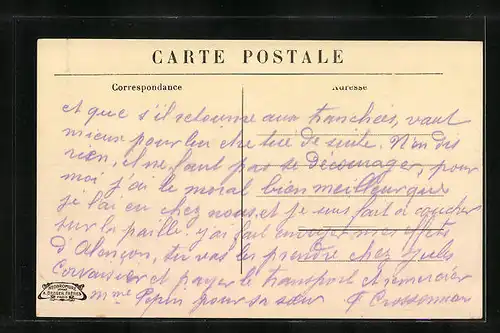 CARTE POSTALE
Correspondance
Adresse
et que s'il retourne aux tranchées, vaut
mieux pour lui être tué de suite. N'en dis
rien, et ne faut pas se décourager, pour
moi j'ai le moral bien meilleur que
je l'ai eu chez nous, et je suis fait à coucher
sur la paille. j'ai fait envoyer mes effets
d'Alençon, tu vas les prendre chez
et payer le transport et remercier
mme Pepin pour sa sœur